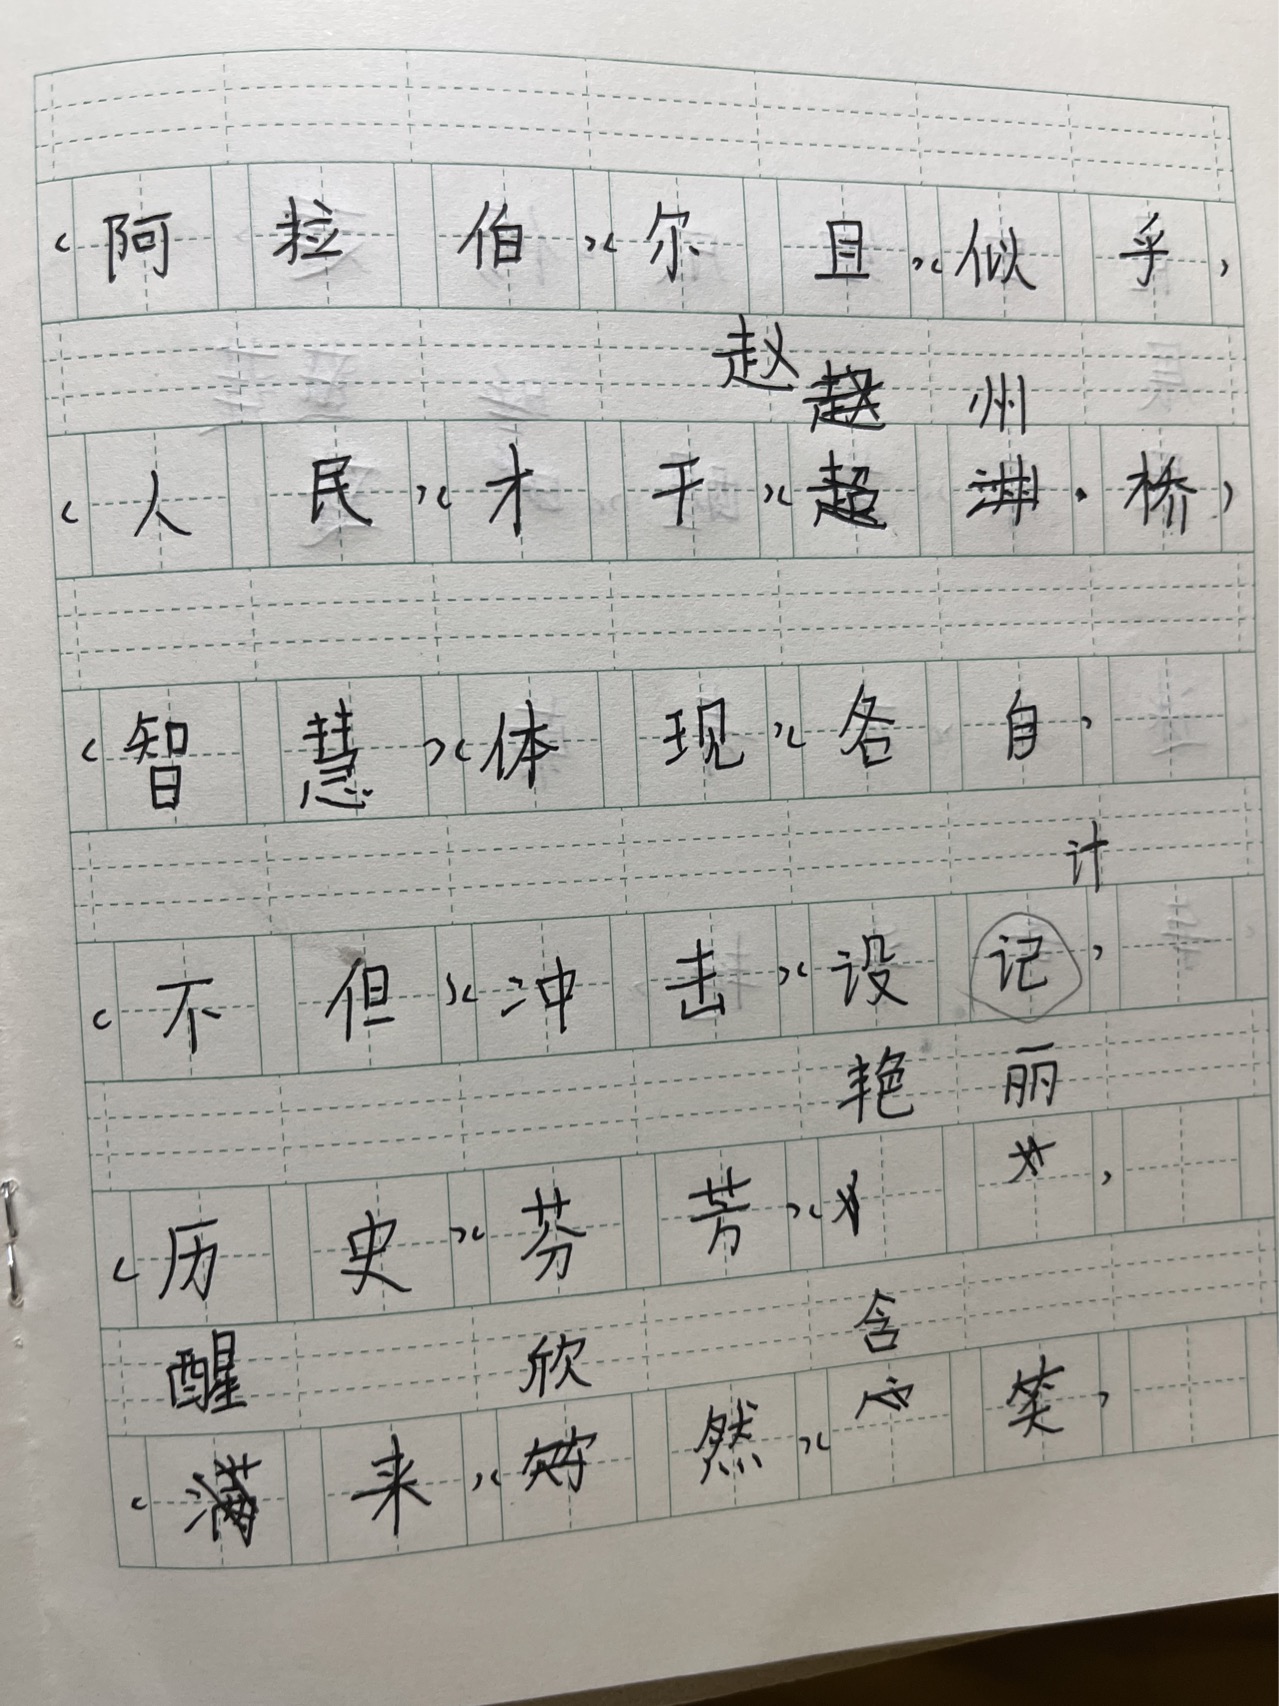 （阿拉伯）（尔且）（似乎）
赵
赵 州
（人民）（才干）（超 桥）
（智慧）（体现）（各自）
计
（不但）（冲击）（设记）
艳丽
（历史）（芬芳）（ ）
醒 欣 含
（满来）（ 然）（ 笑）